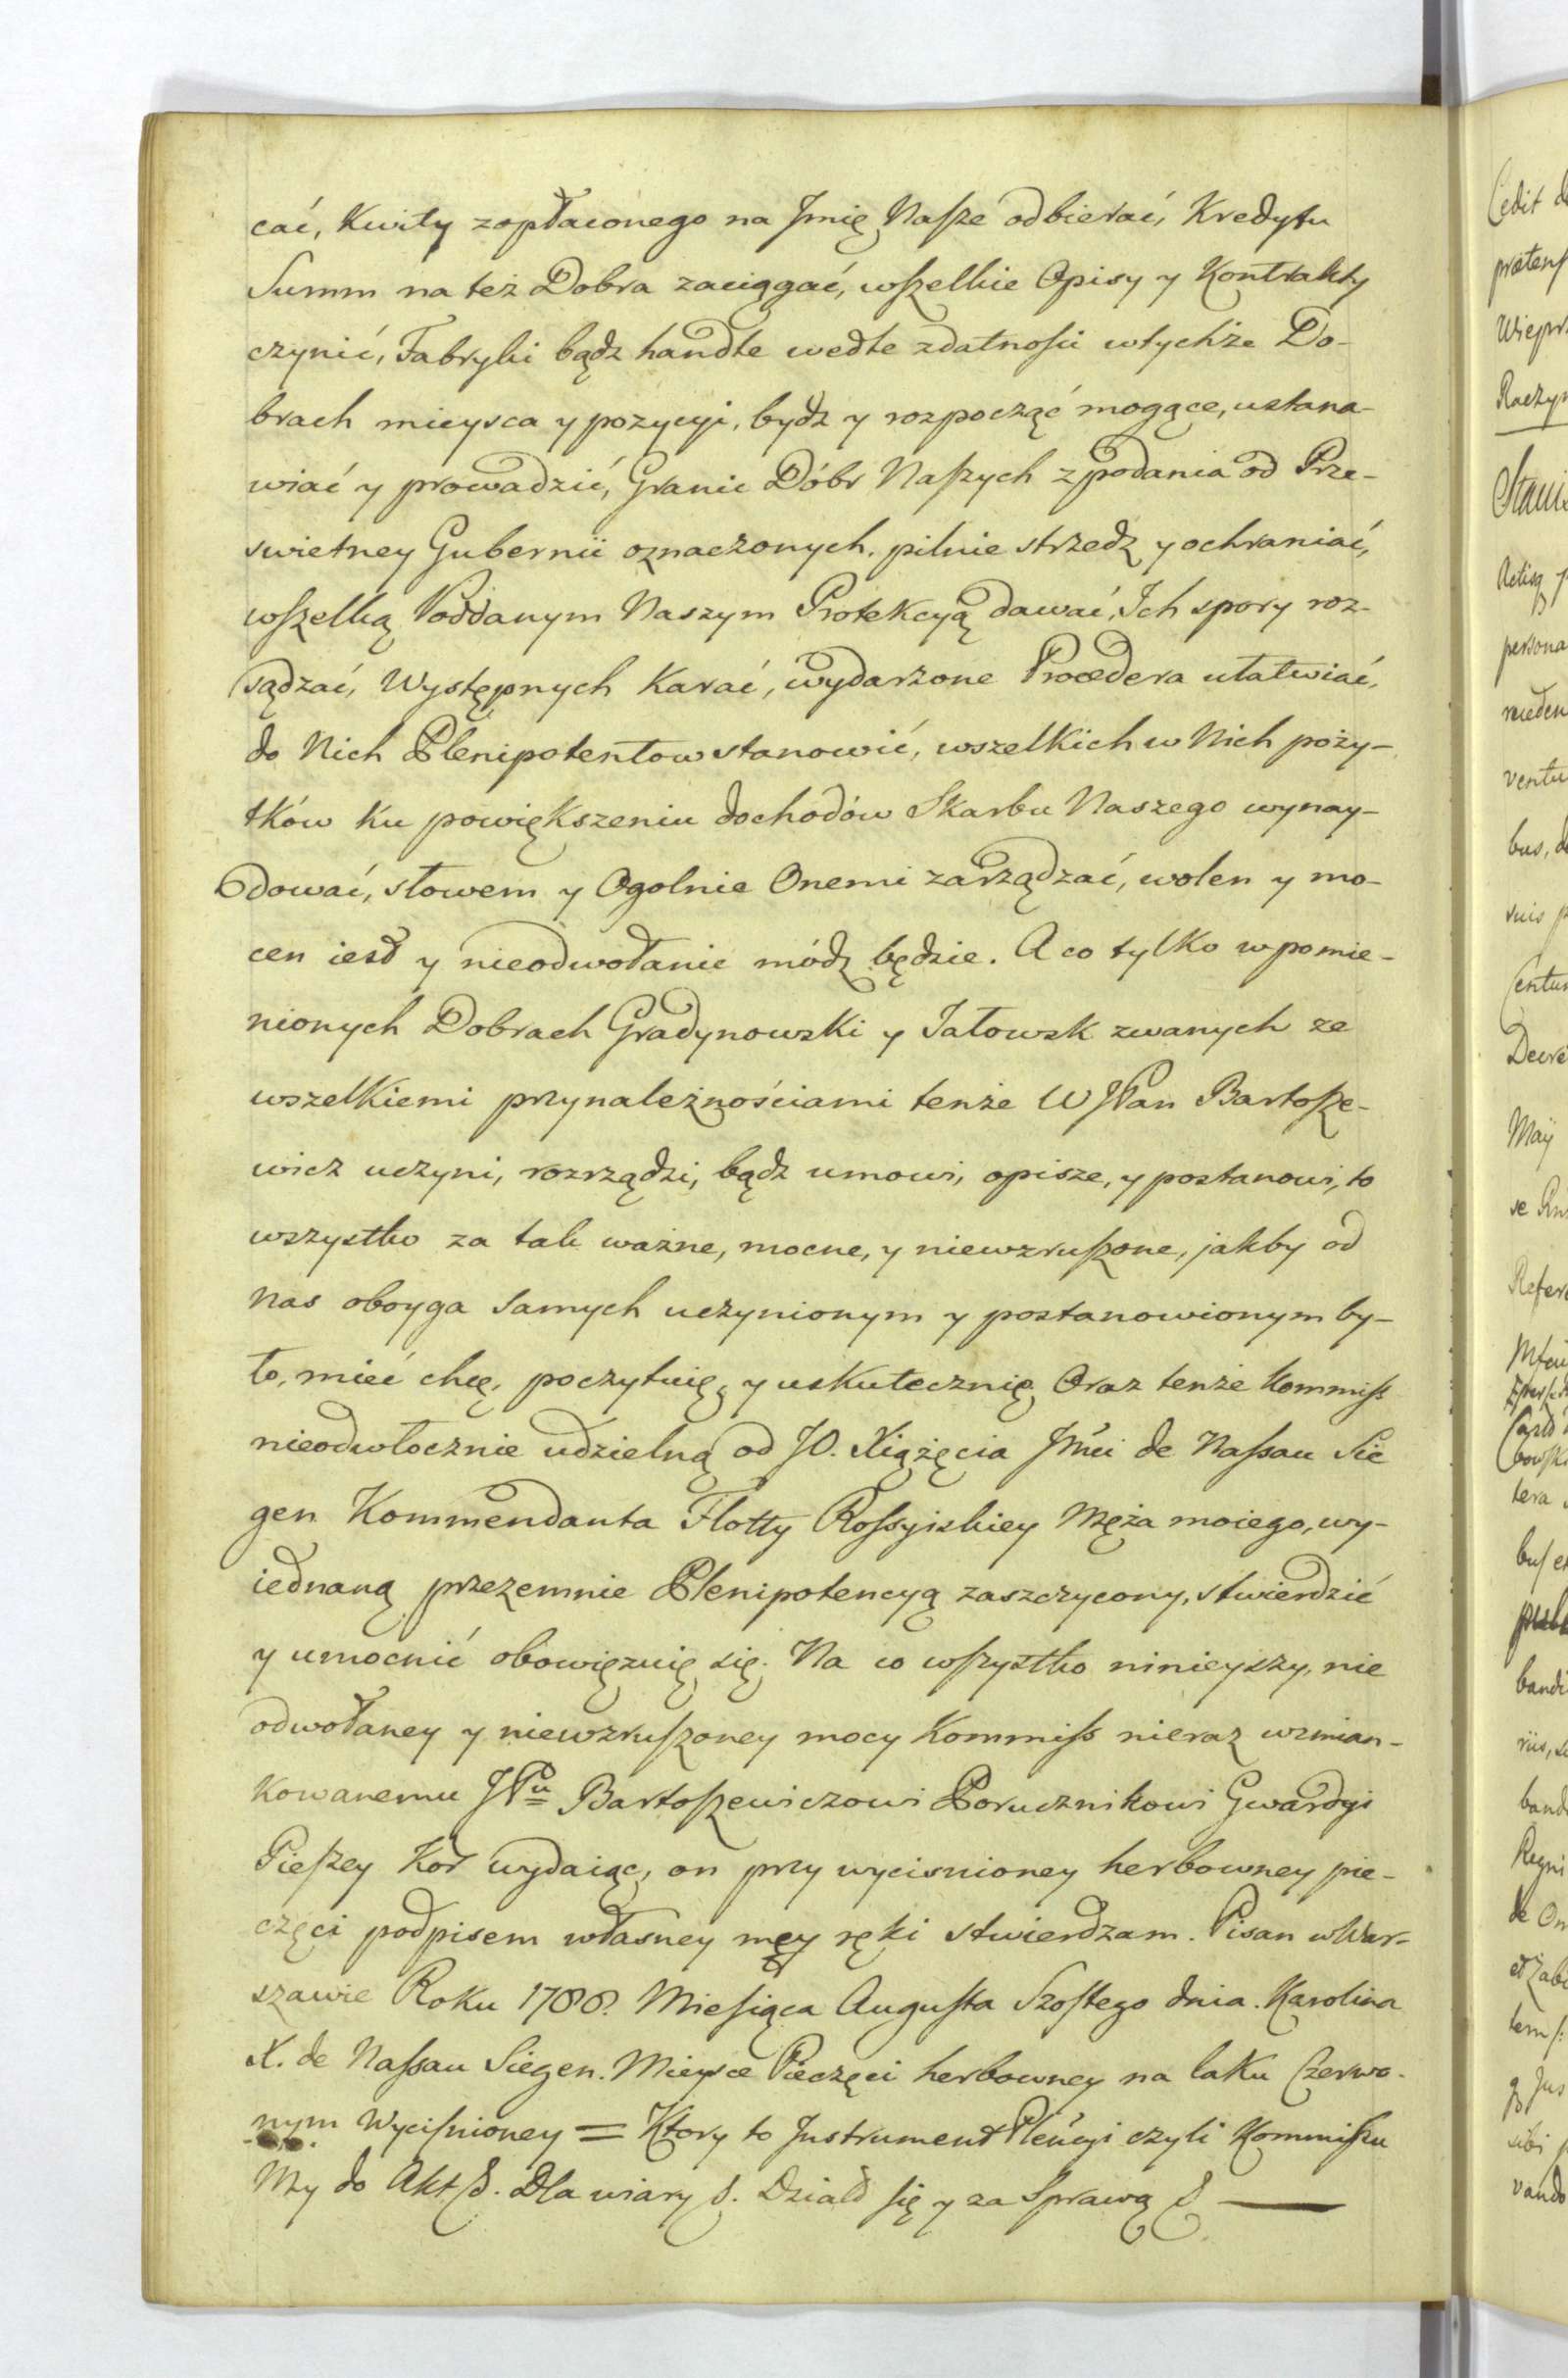 cać, Kwity zopłaconego na Jmię Naſze odbierać, Kredytu
Summ na też Dobra zaciągać, wſzelkie Opisy y Kontrakty
czynić, Fabryki bądz handle wedle zdatnoſci wtychże Do-
brach mieysca y pozycyi, bydz y rozpocząć mogące, ustana-
wiać y prowadzić, Granic Dóbr Naſzych zpodania od Prze-
swietney Gubernii oznaczonych. pilnie strzedz y ochraniać,
wſzelką Poddanym Naszym Protekcyą dawać, Ich spory roz-
sądzać, Występnych Karać, wydarzone Procedera ułatwiać,
do Nich Plenipotentow stanowić, wszelkich w Nich poży-
tków ku powiększeniu dochodów Skarbu Naszego wynay-
dować, słowem y Ogolnie Onemi zarządzać, wolen y mo-
cen iest y nieodwołanie módz będzie. A co tylko wpomie-
nionych Dobrach Gradynowski y Jałowsk zwanych ze
wszelkiemi przynależnościami tenże WJPan Bartoſze-
wicz uczyni, rozrządzi, bądz umowi, opisze, y postanowi, to
wszystko za tak ważne, mocne, y niewzruſzone, jakby od
nas oboyga samych uczynionym y postanowionym by-
ło, mieć chcę, poczytuię, y uskutecznię. Oraz tenże Kommiſs
nieodwłocznie udzielną od JO. Xiążęcia Jmci de Naſsau Sie
gen Kommendanta Flotty Roſsyiskiey Męża moiego, wy-
iednaną przezemnie Plenipotencyą zaszczycony, stwierdzić
y umocnić obowięzuię się. Na co wſzystko ninieyszy, nie
odwołaney y niewzruſzoney mocy Kommiſs nieraz wzmian-
kowanemu JPu Bartoſzewiczowi Porucznikowi Gwardyi
Pieſzey Kor wydaiąc, on przy wycisnioney herbowney pie-
częci podpisem własney mey ręki stwierdzam. Pisan wWar-
szawie Roku 1788. Mieſiąca Auguſta Szoſtego dnia. Karolina
X. de Naſsau Siegen. Mieysce Pieczęci herbowney na laku Czerwo-
nym Wyciſnioney = Ktory to Jnstrument Plencyi czyli Kommiſsu
My do Akt S. Dla wiary S. Dział ſię y za Sprawą S